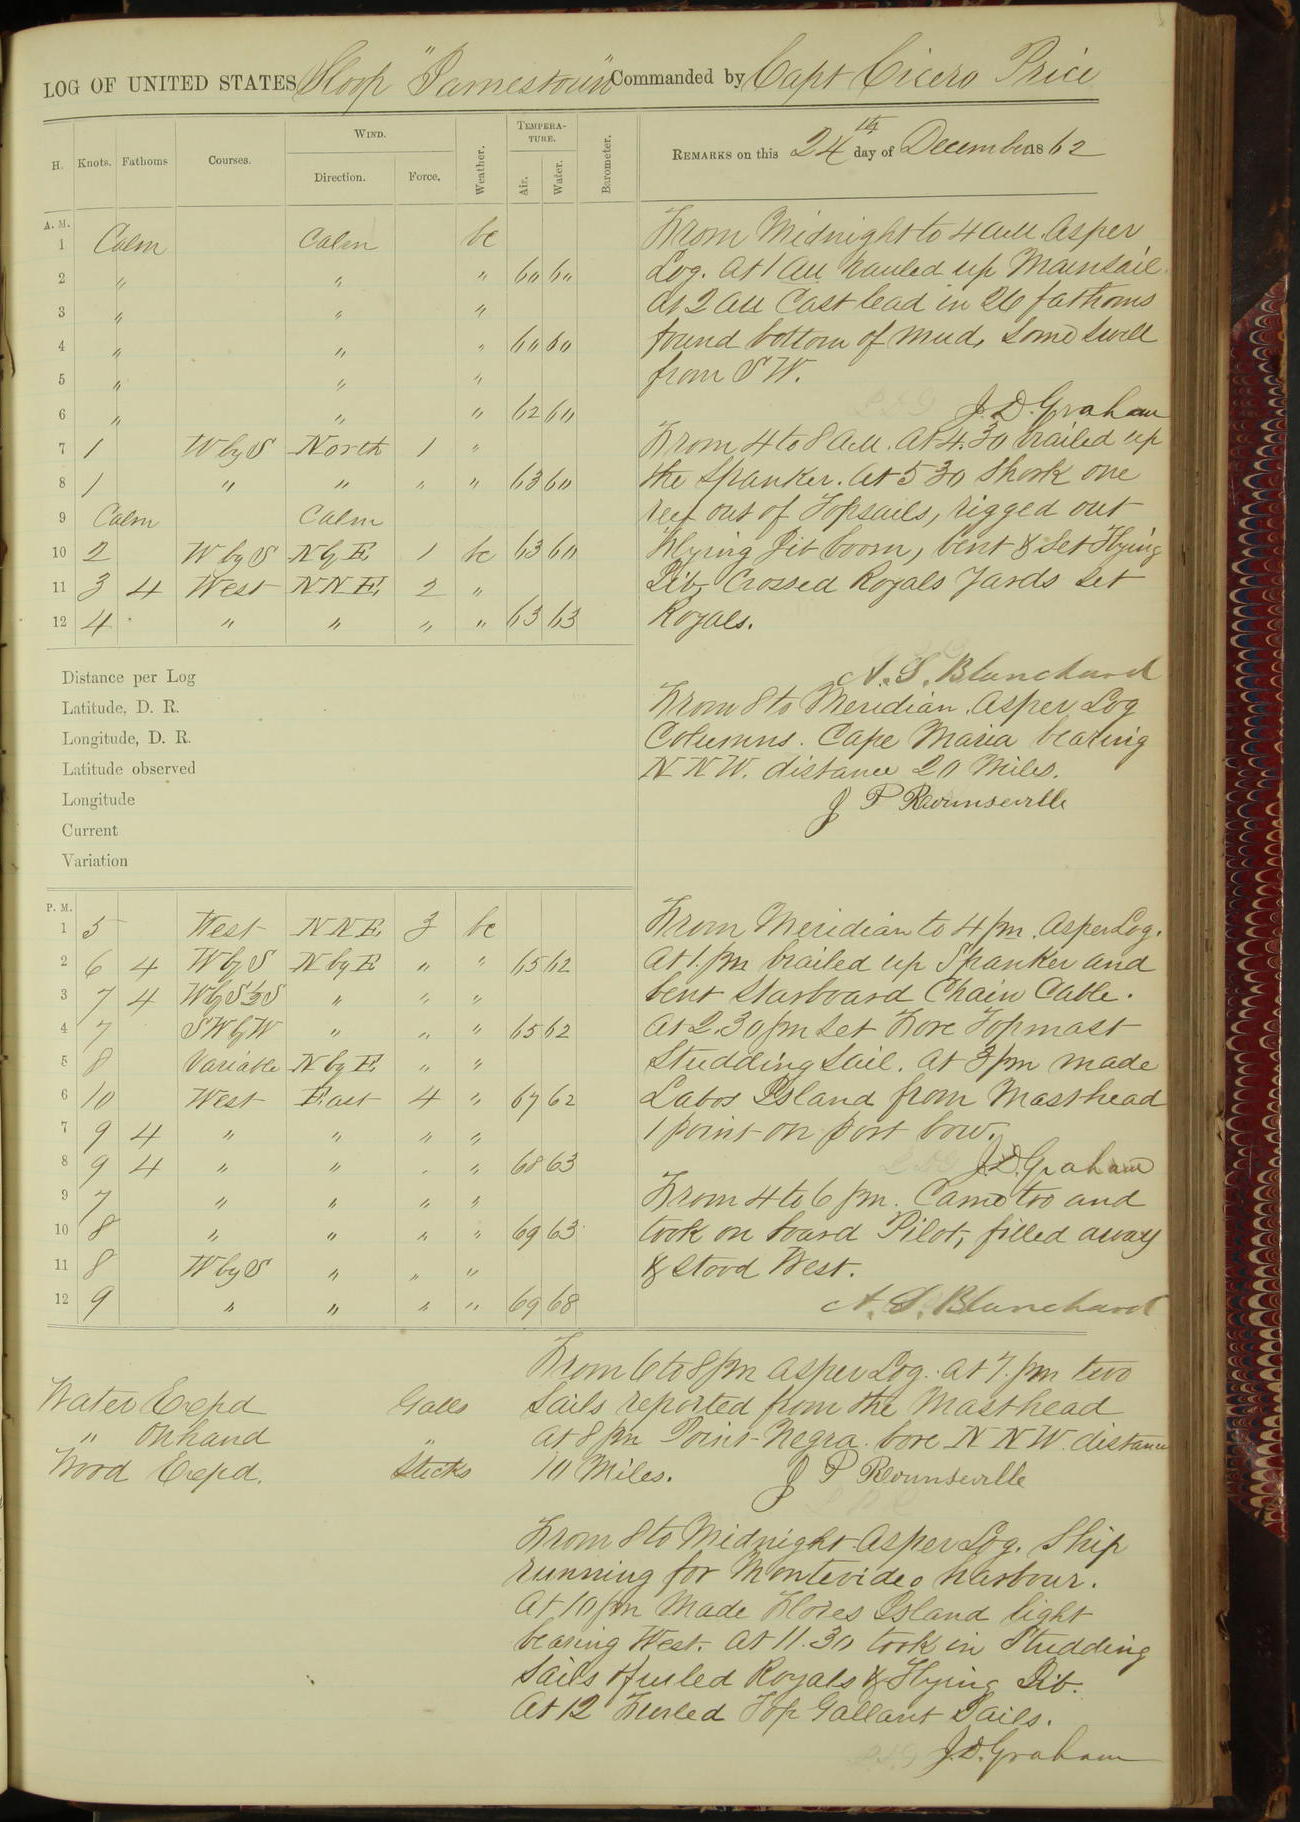 LOG OF UNITED STATES Sloop "Jamestown" Commanded by Capt Cicero Price
H. Knots. Fathoms Courses. WIND. Direction. Force. Weather. TEMPERATURE. Air. Water. Barometer. REMARKS on this 24th day of December 1862
A. M.
1 Calm Calm bc
2 " " " 60 60
3 " " "
4 " " " 60 60
5 " " "
6 " " " 62 60
7 1 W by S North 1 "
8 1 " " " " 63 60
9 Calm Calm
10 2 W by S N by E 1 bc 63 60
11 3 4 West NNE 2 "
12 4 " " " " 63 63
From Midnight to 4 AM. As per
Log. At 1 AM hauled up Mainsail.
At 2 AM Cast lead in 26 fathoms
found bottom of mud, Some swell
from SW.
J. D. Graham
From 4 to 8 AM. At 4.30 brailed up
the Spanker. At 5 30 Shook one
reef out of Topsails, rigged out
Flying Jib boom, bent & set Flying
Jib, Crossed Royals Yards set
Royals.
A. S. Blanchard
From 8 to Meridian. As per Log
Columns. Cape Maria bearing
N N W. distance 20 Miles.
J P Rounseville
Distance per Log
Latitude, D. R.
Longitude, D. R.
Latitude observed
Longitude
Current
Variation
P. M.
1 5 West NNE 3 bc
2 6 4 W by S N by E " " 65 62
3 7 4 W by S ½ S " " "
4 7 SW by W " " " 65 62
5 8 Variable N by E " "
6 10 West East 4 " 67 62
7 9 4 " " " "
8 9 4 " " " " 68 63
9 7 " " " "
10 8 " " " " 69 63
11 8 W by S " " "
12 9 " " " " 69 68
From Meridian to 4 pm. As per Log.
At 1. pm brailed up Spanker and
bent Starboard Chain Cable.
At 2.30 pm set Fore Topmast
Studding Sail. At 3 pm made
Labos Island from Masthead
1 point on port bow.
J. D. Graham
From 4 to 6 pm. Came too and
took on board Pilot, filled away
& stood West.
A. S. Blanchard
From 6 to 8 pm As per Log. At 7. pm two
Sails reported from the Masthead
At 8 pm Point Negra bore N N W. distance
10 Miles. J P Rounseville
Water Expd Galls
" On hand "
Wood Expd. Sticks
From 8 to Midnight As per Log. Ship
running for Montevideo harbour.
At 10 pm Made Flores Island light
bearing West. At 11.30 took in Studding
Sails & furled Royals & Flying Jib.
At 12 Furled Top Gallant Sails.
J. D. Graham